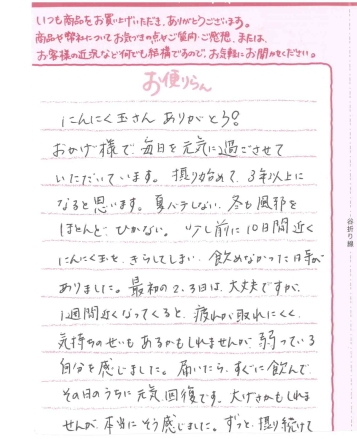 いつも商品をお買い上げいただき、ありがとうございます。
商品や弊社についてお気づきの点やご質問・ご感想、または、
お客様の近況など何でも結構ですので、お気軽にお聞かせください。
お便りらん
にんにく玉さん ありがとう!
おかげ様で、毎日を元気に過ごさせて
いただいています。摂り始めて、3年以上に
なると思います。夏バテしない、冬も風邪を
ほとんど、ひかない。少し前に10日間近く
にんにく玉を、きらしてしまい、飲めなかった日々が
ありました。最初の2、3日は、大丈夫ですが、
1週間近くなってくると、疲れが取れにくく、
気持ちのせいもあるかもしれませんが、弱っている
自分を感じました。届いたら、すぐに飲んで、
その日のうちに元気回復です。大げさかもしれま
せんが、本当にそう感じました。ずっと、摂り続けて
谷折り線